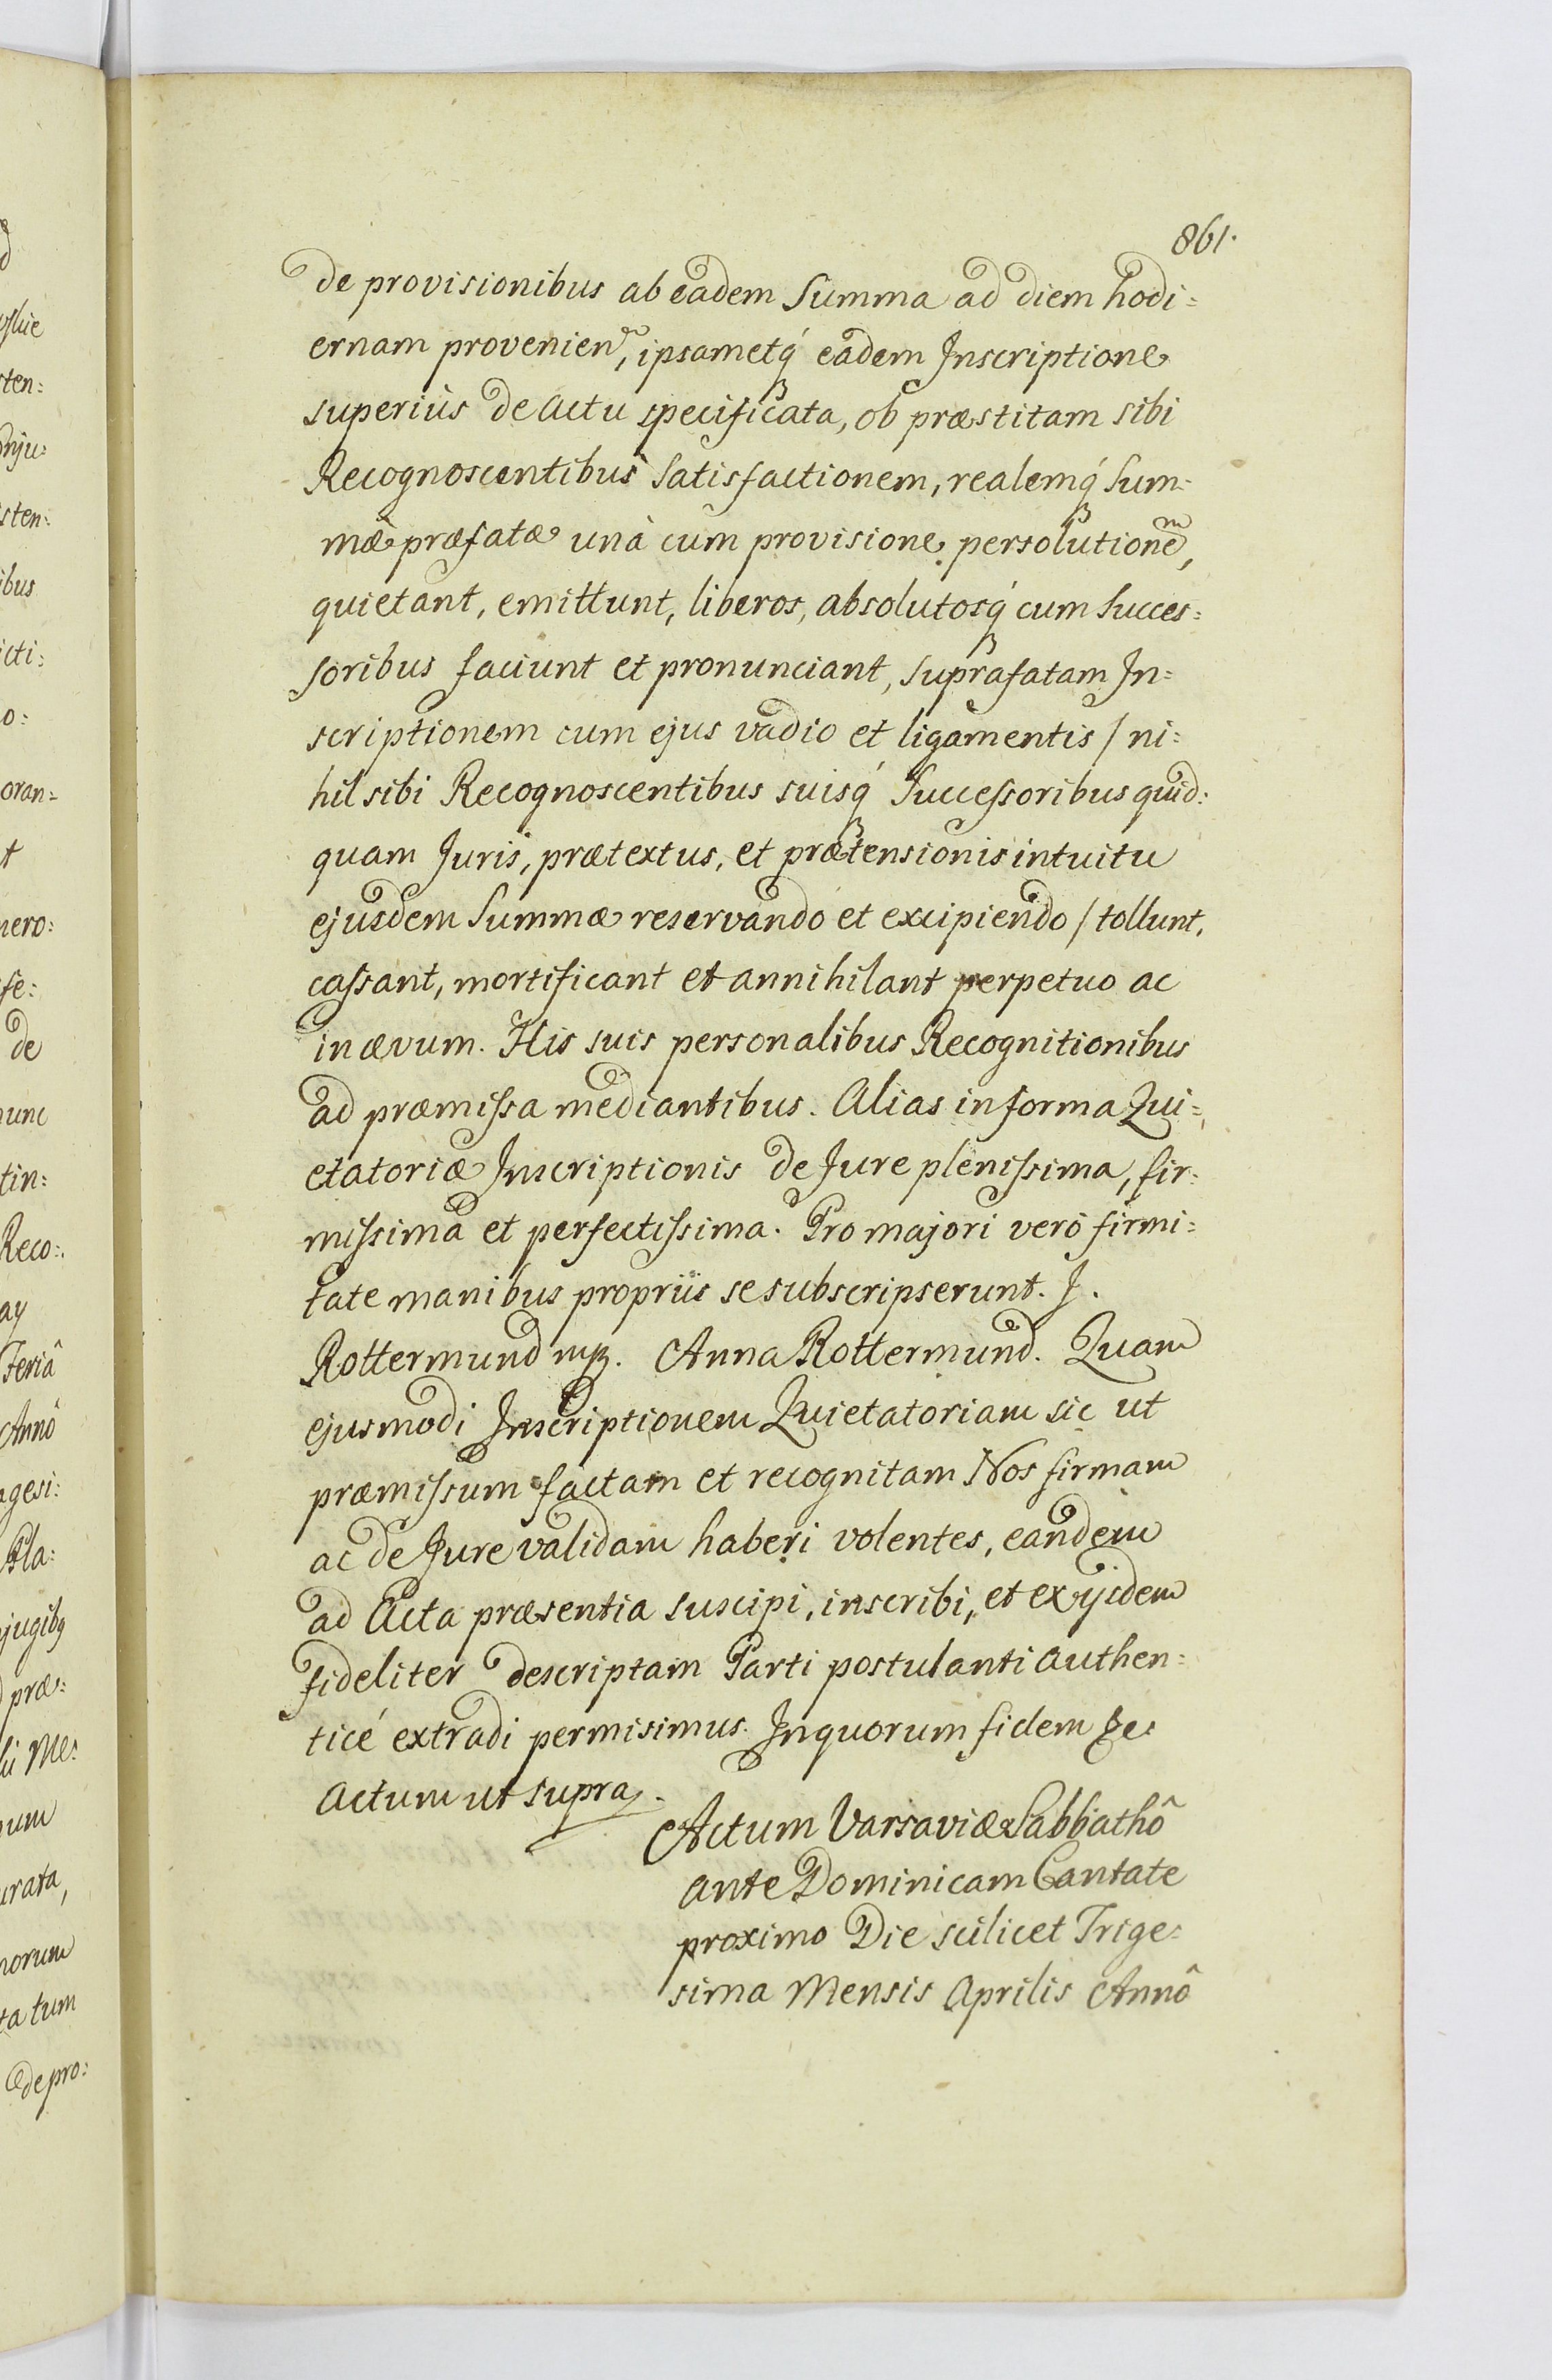 861.
de provisionibus ab eadem Summa ad diem hodi=
ernam provenien, ipsametq́ eadem Inscriptione
superius de Actu specificata, ob præstitam sibi
Recognoscentibus Satisfactionem, realemq́ Sum=
mæ præfatæ unà cum provisione persolutionem,
quietant, emittunt, liberos, absolutosq́ cum Succes=
soribus faciunt et pronunciant, suprafatam In=
scriptionem cum ejus vadio et ligamentis / ni=
hil sibi Recognoscentibus suisq́ Successoribus quid=
quam Juris, prætextus, et prætensionis intuitu
ejusdem Summæ reservando et excipiendo / tollunt,
cassant, mortificant et annihilant perpetuo ac
in ævum. His suis personalibus Recognitionibus
ad præmissa mediantibus. Alias in forma Qui=
etatoriæ Inscriptionis de Jure plenissima, fir=
missima et perfectissima. Pro majori verò firmi=
tate manibus propriis se subscripserunt. J.
Rottermund mp. Anna Rottermund. Quam
ejusmodi Inscriptionem Quietatoriam sic ut
præmissum factam et recognitam Nos firmam
ac de Jure validam haberi volentes, eandem
ad Acta præsentia suscipi, inscribi, et ex ijsdem
fideliter descriptam Parti postulanti authen=
ticé extradi permisimus. In quorum fidem &c.
Actum ut supra.
Actum Varsaviæ Sabbathô
ante Dominicam Cantate
proximo Die scilicet Trige=
sima Mensis Aprilis Annô
ten:
sten:
ibus
icti:
o:
oran=
t
nero:
de
nunc
tin:
Reco:
ay
Feriâ
Annô
agesi:
Pla:
præ:
Me:
urata,
norum
ta tum
de pro: